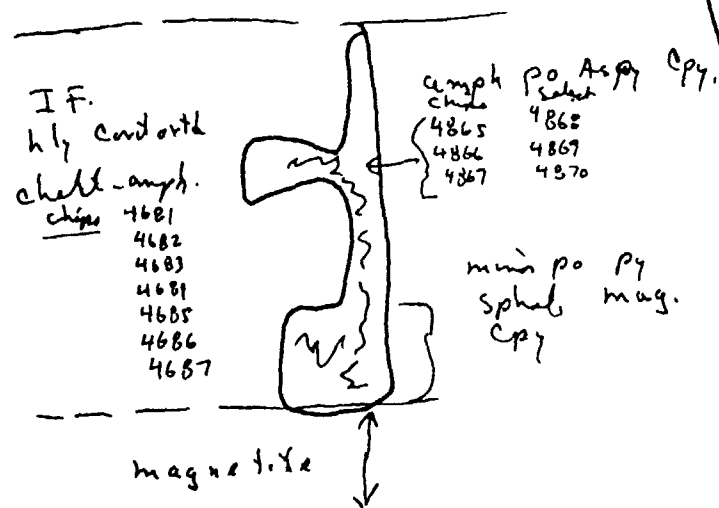 I F.
hly contorted
chert-amph.
chips 4681
4682
4683
4684
4685
4686
4687
amph po Aspy Cpy.
chips select
4865 4868
4866 4869
4867 4870
minor po py
sphal, mag.
Cpy
magnetite